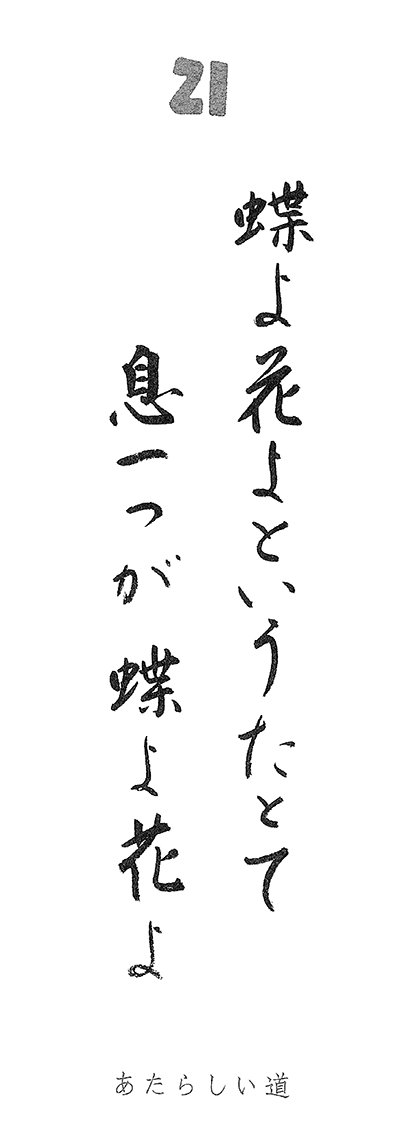 21
蝶よ花よというたとて
息一つが蝶よ花よ
あたらしい道